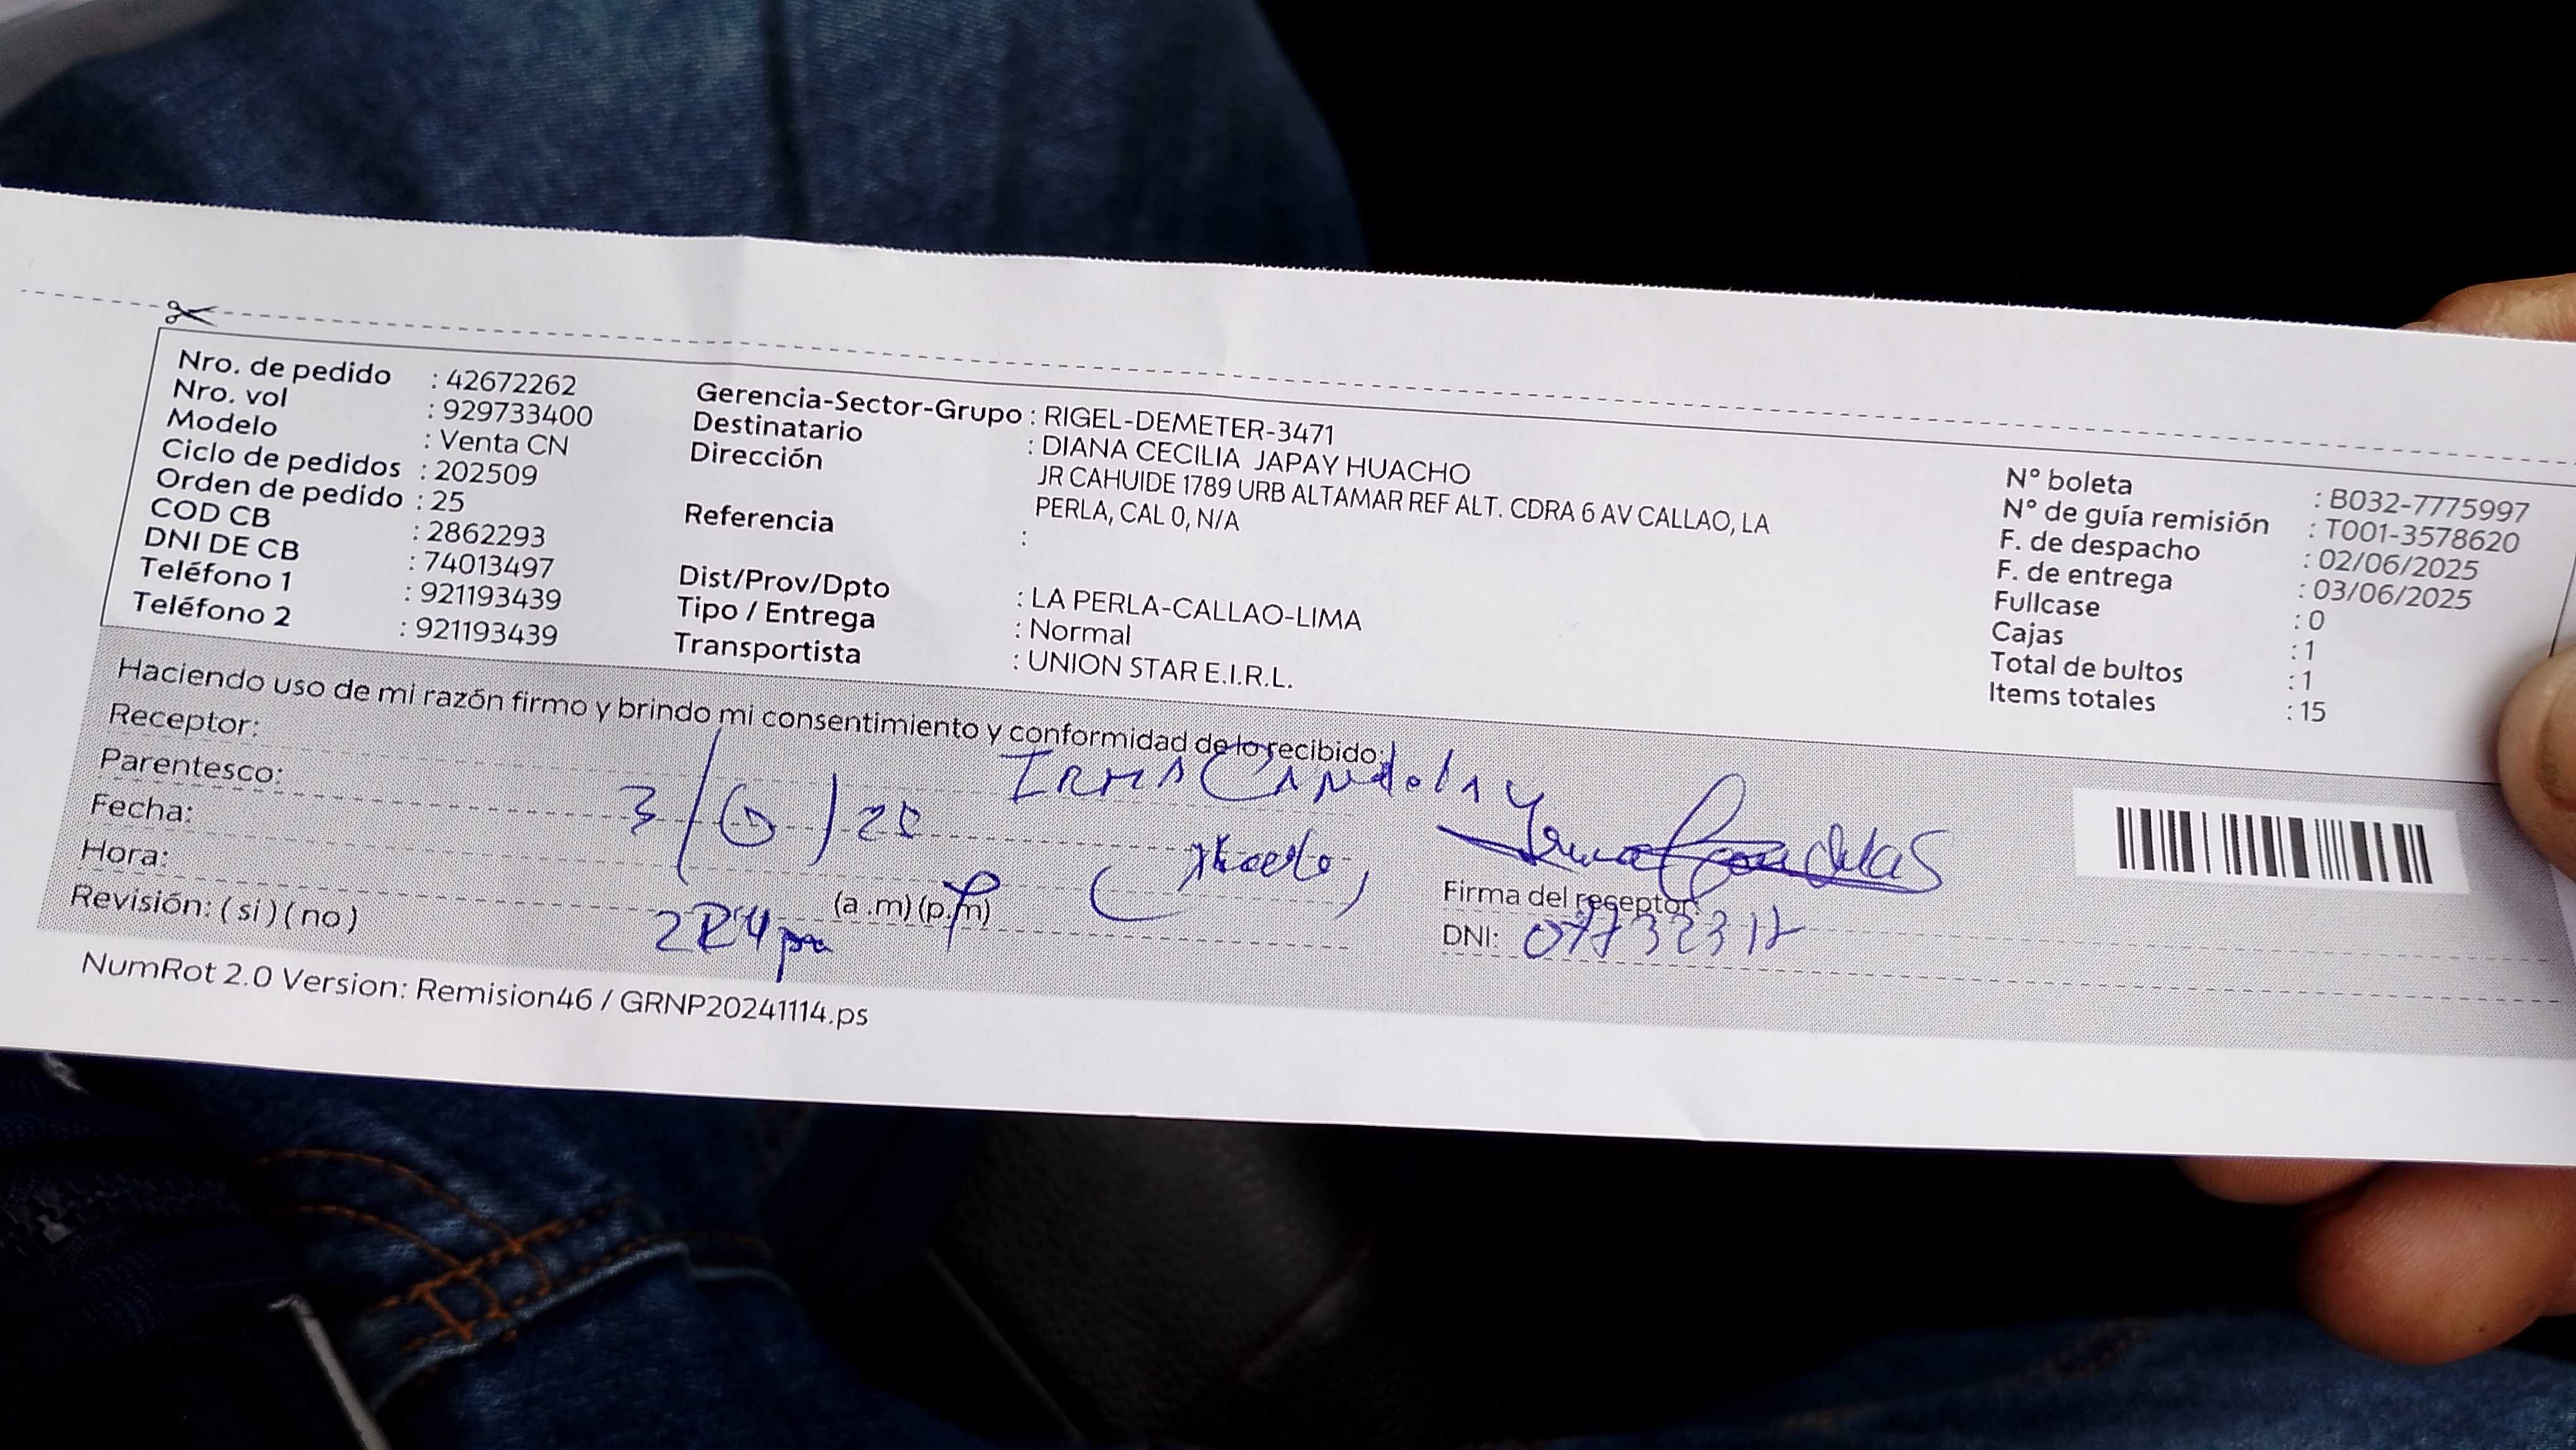 Nro. de pedido : 42672262
Nro. vol : 929733400
Modelo : Venta CN
Ciclo de pedidos : 202509
Orden de pedido : 25
COD CB : 2862293
DNI DE CB : 74013497
Teléfono 1 : 921193439
Teléfono 2 : 921193439
Gerencia-Sector-Grupo : RIGEL-DEMETER-3471
Destinatario : DIANA CECILIA JAPAY HUACHO
Dirección : JR CAHUIDE 1789 URB ALTAMAR REF ALT. CDRA 6 AV CALLAO, LA
PERLA, CAL 0, N/A
Referencia :
Dist/Prov/Dpto : LA PERLA-CALLAO-LIMA
Tipo / Entrega : Normal
Transportista : UNION STAR E.I.R.L.
N° boleta : B032-7775997
N° de guía remisión : T001-3578620
F. de despacho : 02/06/2025
F. de entrega : 03/06/2025
Fullcase : 0
Cajas : 1
Total de bultos : 1
Items totales : 15
Haciendo uso de mi razón firmo y brindo mi consentimiento y conformidad de lo recibido:
Receptor:
Parentesco:
Fecha: 3/6/20
Hora: (a.m) (p.m)
Revisión: ( si ) ( no )
Firma del receptor:
DNI:
NumRot 2.0 Version: Remision46 / GRNP20241114.ps